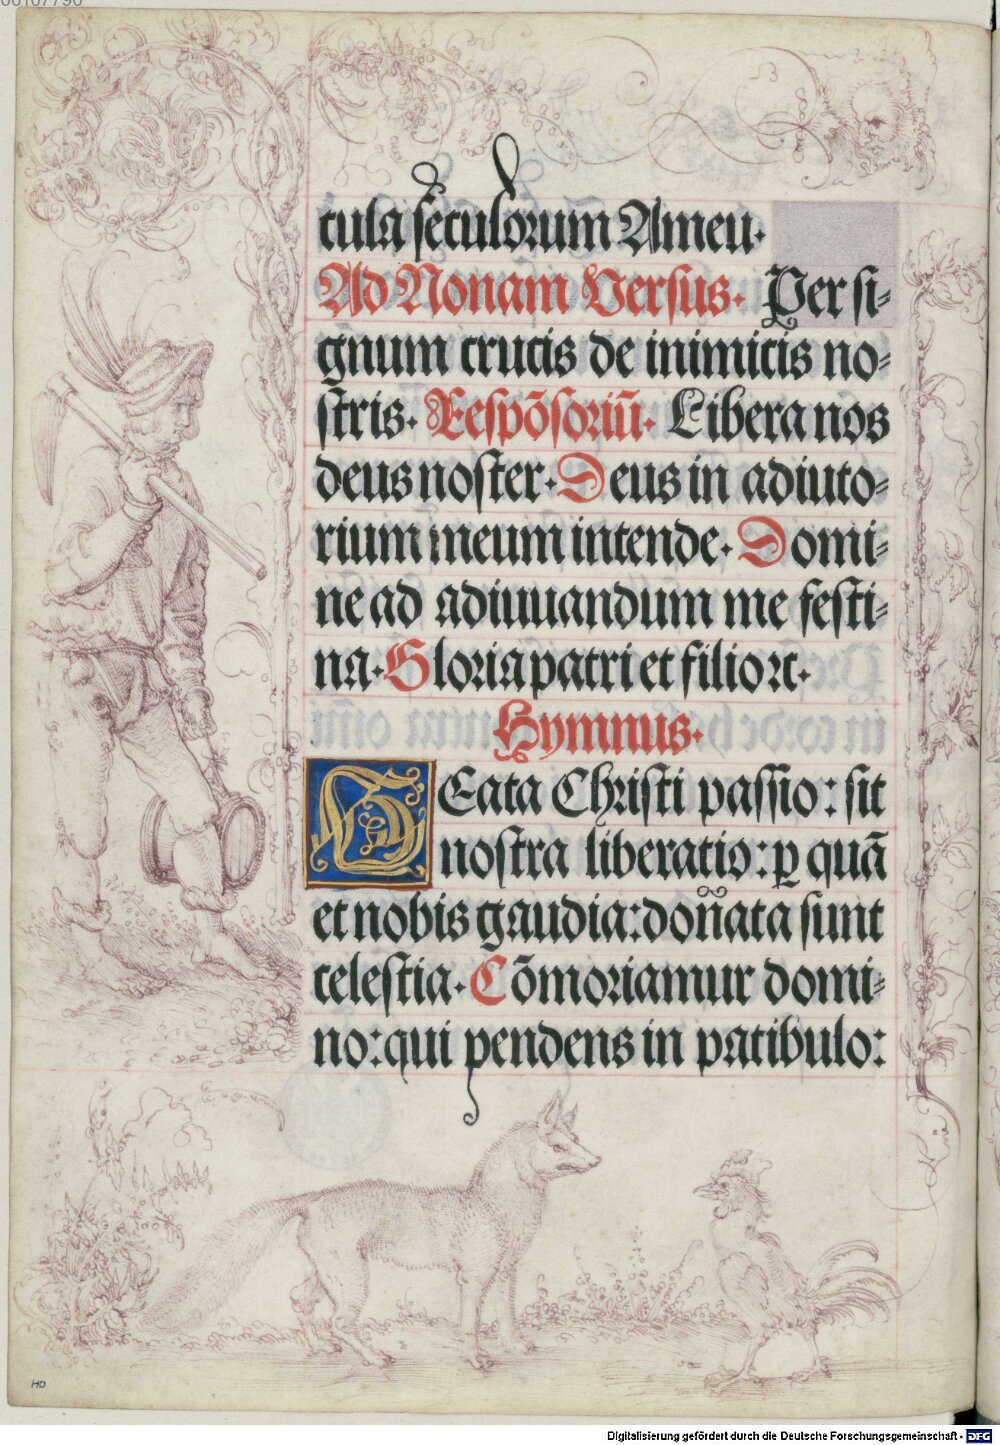 cula seculorum Ameu.
Ad Nonam Versus. Per si-
gnum crucis de inimicis no-
stris. Respōsoriū. Libera nos
deus noster. Deus in adiuto-
rium meum intende. Domi-
ne ad adiuuandum me festi-
na. Gloria patri et filio ꝛc.
Hymnus.
BEata Christi passio: sit
nostra liberatio: p̱ quā
et nobis gaudia: doñata sunt
celestia. Cōmoriamur domi-
no: qui pendens in patibulo:
HD
Digitalisierung gefördert durch die Deutsche Forschungsgemeinschaft - DFG